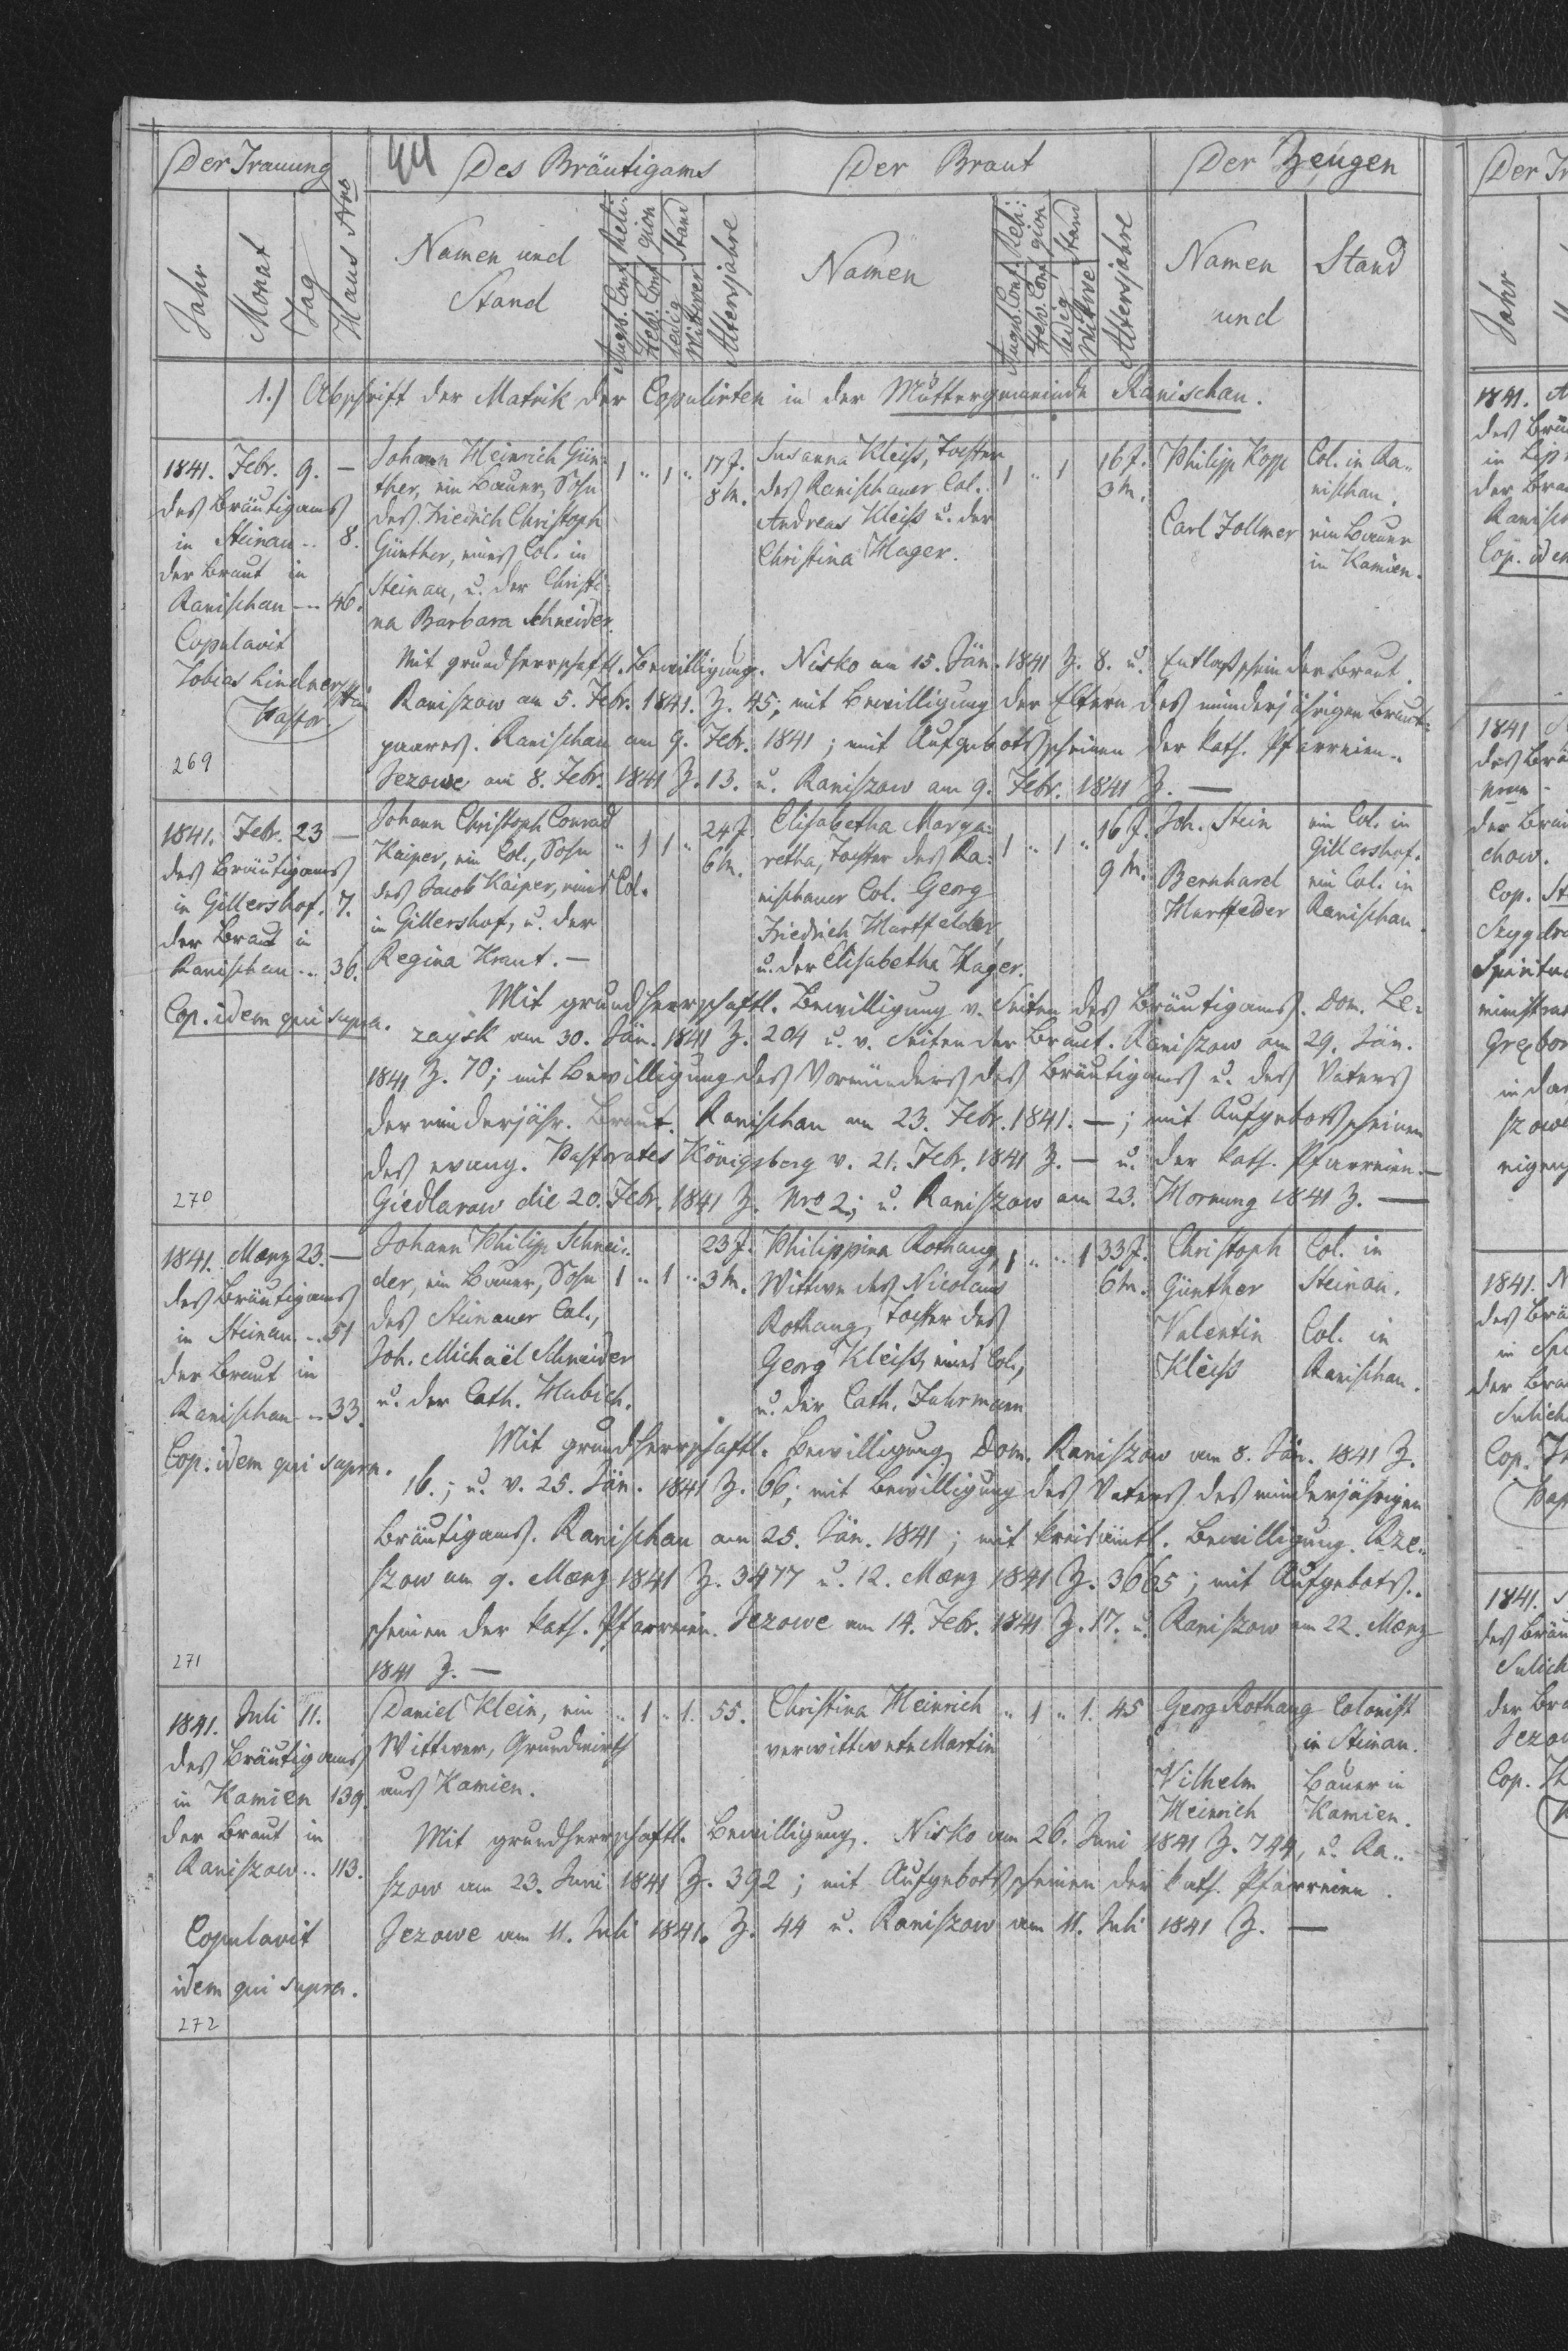 Der Trauung
44
Des Bräutigams
Der Braut
Der Zeugen
Jahr
Monat
Tag
Haus Nro
Namen und Stand
Augsb. Conf.
Helv. Conf.
Religion
ledig
Wittwer
Stand
Altersjahre
Namen
Augsb. Conf.
Helv. Conf.
Religion
ledig
Wittwe
Stand
Altersjahre
Namen und
Stand
1.) Abschrift der Matrik der Copulirten in der Muttergemeinde Ranischau.
1841. Febr. 9. —
des Bräutigams
in Steinau .. 8.
der Braut in
Ranischau --- 46.
Copulavit
Tobias Lindner
Pastor
269
Johann Heinrich Gün-
ther, ein Bauer, Sohn
des Friedrich Christoph
Günther, eines Col. in
Steinau, u. der Christi-
na Barbara Schneider.
1 " 1 " 17 J.
8 M.
Susanna Kleiß, Tochter
des Ranischauer Col.
Andreas Kleiß u. der
Christina Hager.
1 " 1 16 J.
3 M.
Philipp Kopp
Col. in Ra-
nischau.
Carl Zollmer
ein Bauer
in Kamien.
Mit grundherrschaftl. Bewilligung. Nisko am 15. Jän. 1841 Z. 8. u. Entlaßschein der Braut.
Raniszow am 5. Febr. 1841. Z. 45; mit Bewilligung der Eltern des minderjährigen Braut-
paares. Ranischau am 9. Febr. 1841; mit Aufgebotsscheinen der kath. Pfarreien..
Jezowe am 8. Febr. 1841 Z. 13. u. Raniszow am 9. Febr. 1841 Z. —
1841. Febr. 23 —
des Bräutigams
in Gillershof. 7.
der Braut in
Ranischau ... 36.
Cop. idem qui supra.
270
Johann Christoph Conrad
Kaiper, ein Col., Sohn
des Jacob Kaiper, eines Col.
in Gillershof, u. der
Regina Kraut. —
" 1 1 " 24 J.
6 M.
Elisabetha Marga-
retha, Tochter des Ra-
nischauer Col. Georg
Friedrich Hartfelder,
u. der Elisabetha Hager.
1 " 1 " 16 J.
9 M.
Joh. Stein
ein Col. in
Gillershof.
Bernhard
Hartfelder
ein Col. in
Ranischau.
Mit grundherrschaftl. Bewilligung v. Seiten des Bräutigams. Dom. Le-
zaysk am 30. Jän. 1841 Z. 204 u. v. Seiten der Braut. Raniszow am 29. Jän.
1841 Z. 70; mit Bewilligung des Vormünders des Bräutigams u. des Vaters
der minderjähr. Braut. Ranischau am 23. Febr. 1841. —; mit Aufgebotsscheinen
des evang. Pastorates Königsberg v. 21. Febr. 1841 Z. — u. der kath. Pfarreien. —
Giedlarow die 20. Febr. 1841 Z. Nro 2; u. Raniszow am 23. Hornung 1841 Z. —
1841. Mærz 23. —
des Bräutigams
in Steinau .. 51
der Braut in
Ranischau .. 33.
Cop. idem qui supra.
271
Johann Philipp Schnei-
der, ein Bauer, Sohn
des Steinauer Col.,
Joh. Michaël Schneider
u. der Cath. Hubich.
1 " 1 " 23 J.
3 M.
Philippina Rothaug,
Wittwe des Nicolaus
Rothaug, Tochter des
Georg Kleiß, eines Col.,
u. der Cath. Fuhrmann
1 " " 1 33 J.
6 M.
Christoph
Günther
Col. in
Steinau.
Valentin
Kleiss
Col. in
Ranischau.
Mit grundherrschaftl. Bewilligung Dom. Raniszow am 8. Jän. 1841 Z.
16.; u. v. 25. Jän. 1841 Z. 66; mit Bewilligung des Vaters des minderjährigen
Bräutigams. Ranischau am 25. Jän. 1841; mit kreisämtl. Bewilligung. Rze-
szow am 9. Mærz 1841 Z. 3477 u. 12. Mærz 1841 Z. 3665; mit Aufgebots-
scheinen der kath. Pfarreien. Jezowe am 14. Febr. 1841 Z. 17. u. Raniszow am 22. Mærz
1841 Z. —
1841. Juli 11.
des Bräutigams
in Kamien 139.
der Braut in
Raniszow .. 113.
Copulavit
idem qui supra.
272
Daniel Klein, ein
Wittwer, Grundwirth
aus Kamien.
" 1 " 1. 55.
Christina Heinrich
verwittwete Martin
" 1 " 1. 45
Georg Rothaug
Colonist
in Steinau.
Wilhelm
Heinrich
Bauer in
Kamien.
Mit grundherrschaftl. Bewilligung. Nisko am 26. Juni 1841 Z. 744, u. Ra-
szow am 23. Juni 1841 Z. 392; mit Aufgebotsscheinen der kath. Pfarreien.
Jezowe am 11. Juli 1841. Z. 44 u. Raniszow am 11. Juli 1841 Z. —
Der Tr
Jahr
1841.
des Bräu
der Brau
Ranisch
Cop. idem
1841
des Brä
der Brau
chow.
Cop.
1841.
des Brä
der Brau
Cop.
1841.
des Bräu
der Bra
Jezow
Cop.